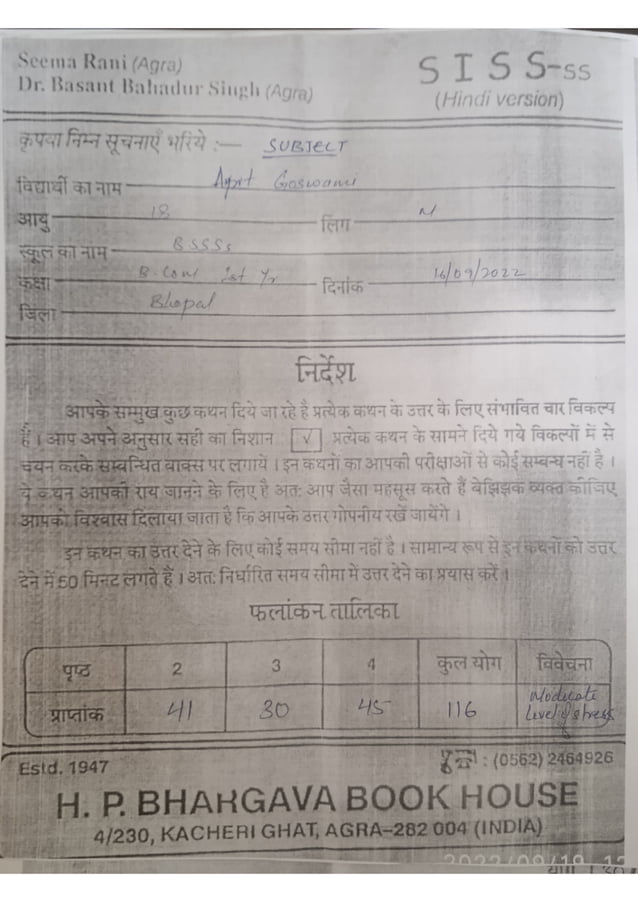 Seema Rani (Agra)
Dr. Basant Bahadur Singh (Agra)
SISS-SS
(Hindi version)
कृपया निम्न सूचनाएँ भरिये :— SUBJECT
विद्यार्थी का नाम Goswami
आयु 18 लिंग M
स्कूल का नाम BSSSs
कक्षा B.Com Ist Yr दिनांक 16/09/2022
जिला Bhopal
निर्देश
आपके सम्मुख कुछ कथन दिये जा रहे है प्रत्येक कथन के उत्तर के लिए संभावित चार विकल्प
हैं। आप अपने अनुसार सही का निशान [√] प्रत्येक कथन के सामने दिये गये विकल्पों में से
चयन करके सम्बन्धित बाक्स पर लगायें। इन कथनों का आपकी परीक्षाओं से कोई सम्बन्ध नहीं है।
ये कथन आपकी राय जानने के लिए है अतः आप जैसा महसूस करते हैं बेझिझक व्यक्त कीजिए
आपको विश्वास दिलाया जाता है कि आपके उत्तर गोपनीय रखें जायेंगे।
इन कथन का उत्तर देने के लिए कोई समय सीमा नहीं है। सामान्य रूप से इन कथनों को उत्तर
देने में 50 मिनट लगते हैं। अतः निर्धारित समय सीमा में उत्तर देने का प्रयास करें।
फलांकन तालिका
पृष्ठ 2 3 4 कुल योग विवेचना
प्राप्तांक 41 30 45 116 Moderate level of stress
Estd. 1947
: (0562) 2464926
H. P. BHARGAVA BOOK HOUSE
4/230, KACHERI GHAT, AGRA–282 004 (INDIA)
2022/09/19